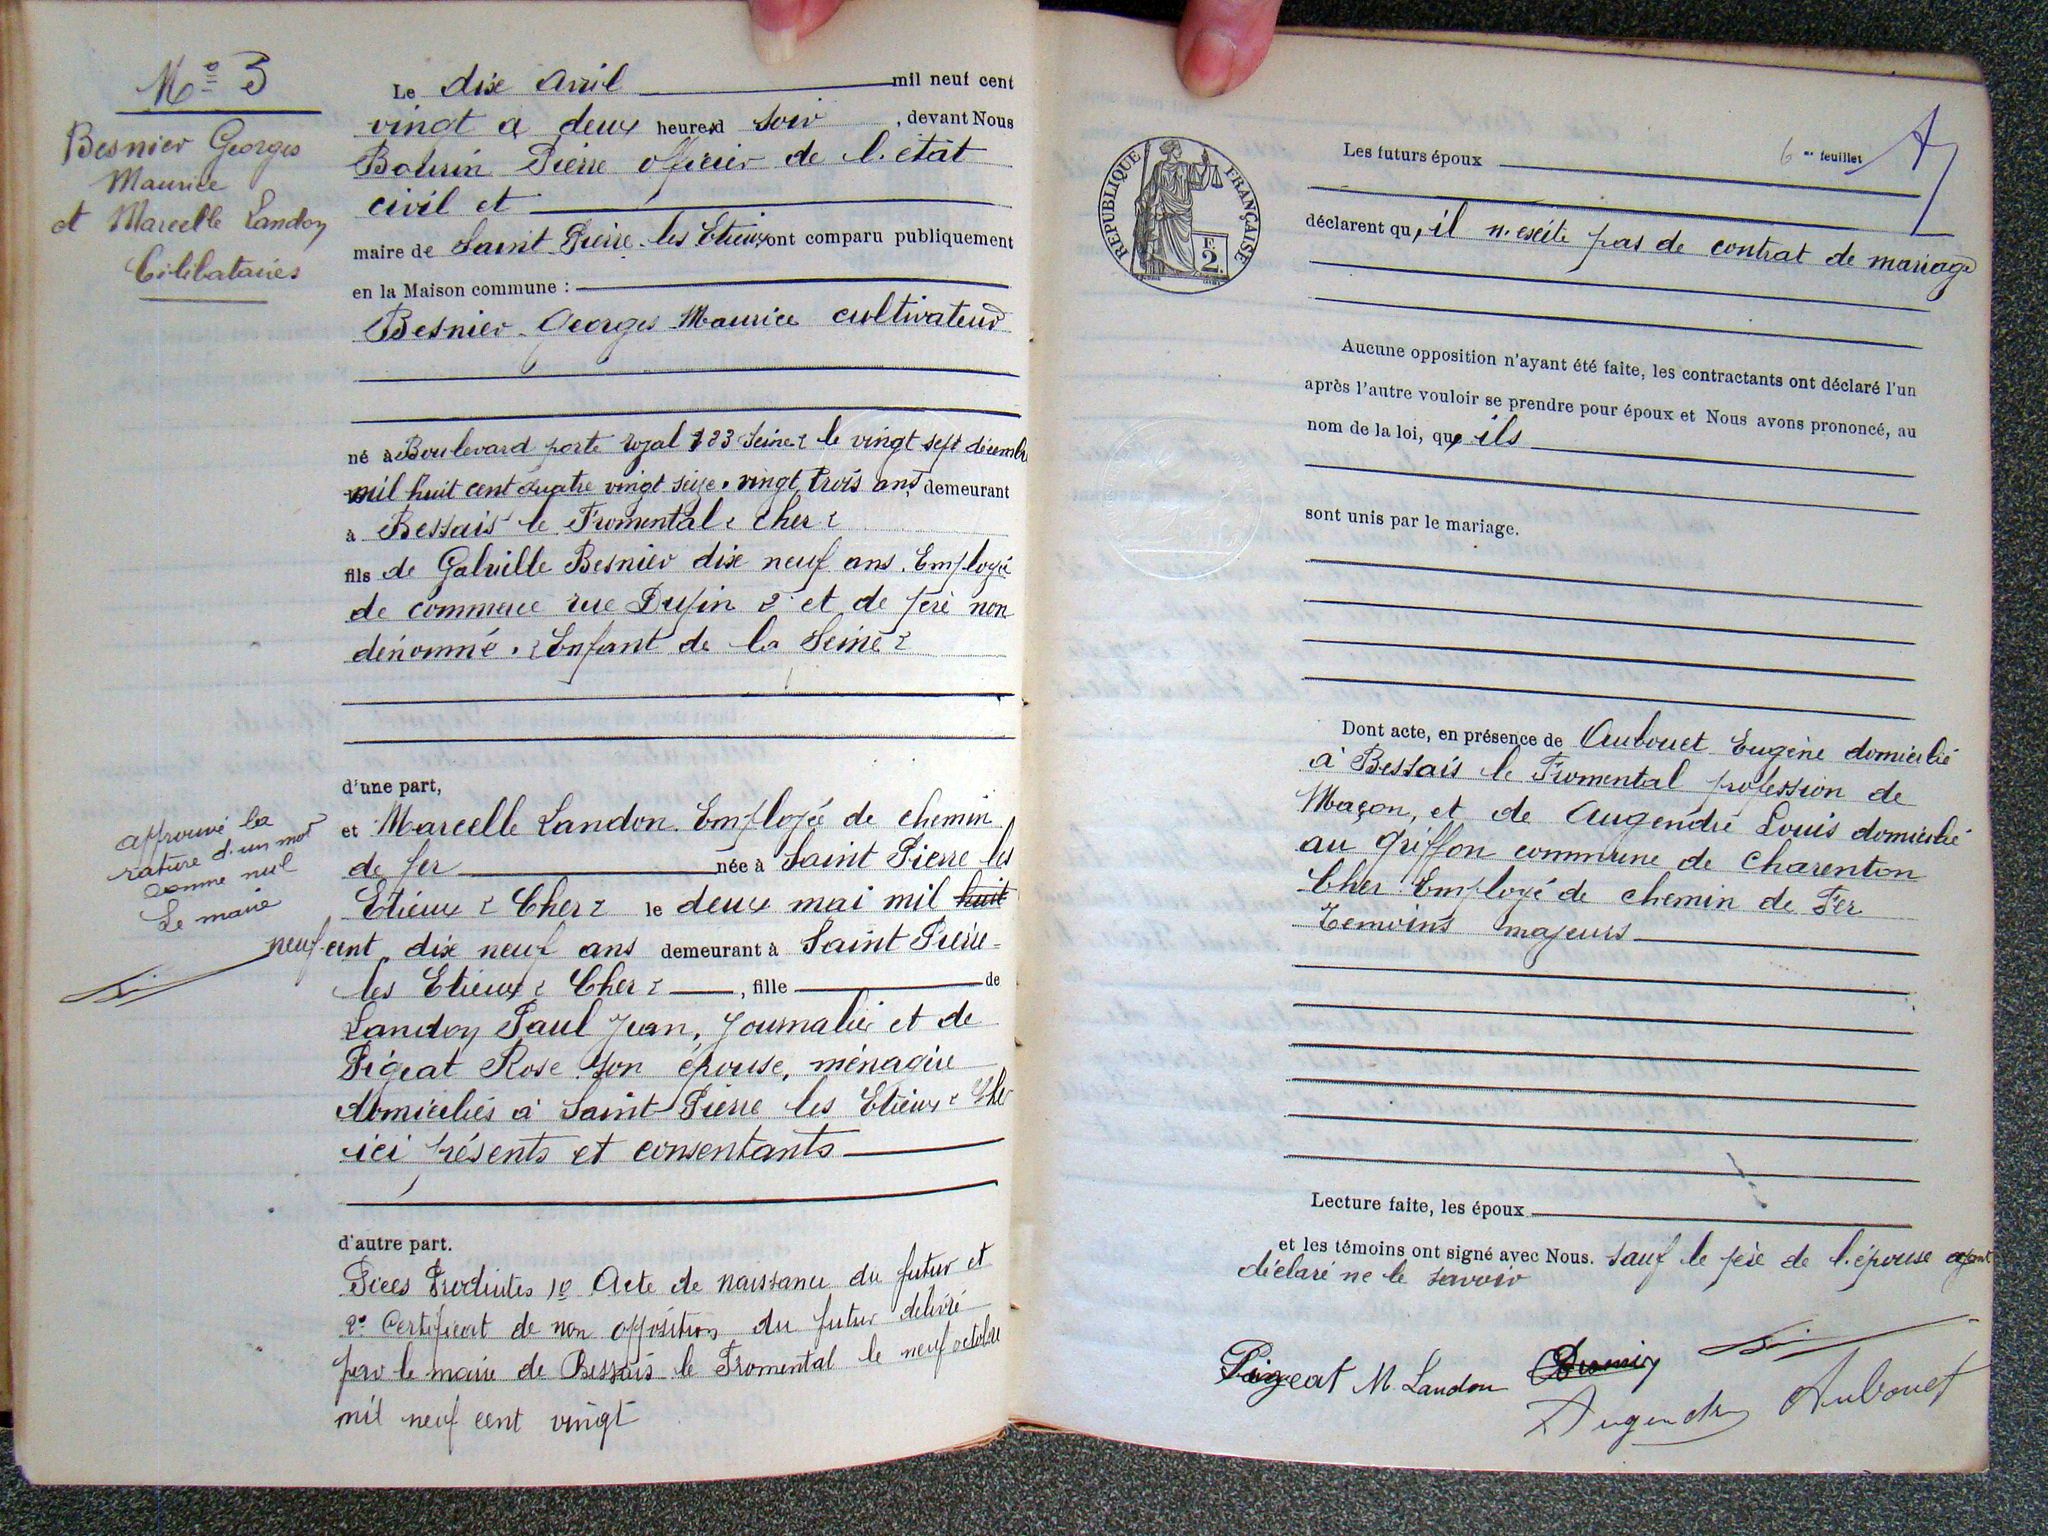 Nº 3
Besnier Georges
Maurice
et Marcelle Landon
Célibataires
Le dix Avril mil neuf cent
vingt à deux heures d soir, devant Nous
Pierre officier de l'état
civil et
maire de Saint Pierre les Etieux ont comparu publiquement
en la Maison commune :
Besnier Georges Maurice cultivateur
né à Boulevard porte royal 123 Seine le vingt sept décembre
mil huit cent quatre vingt seize. vingt trois ans, demeurant
à Bessais le Fromental Cher
fils de Galville Besnier dix neuf ans. Employé
de commerce rue Dupin 2 et de père non
dénommé. Enfant de la Seine
d'une part,
et Marcelle Landon Employée de chemin
de fer née à Saint Pierre les
Etieux Cher le deux mai mil huit
neuf cent, dix neuf ans demeurant à Saint Pierre
les Etieux Cher, fille de
Landon Paul Jean, Journalier et de
Pigeat Rose son épouse, ménagère
domiciliés à Saint Pierre les Etieux Cher
ici présents et consentants
approuvé la
rature d'un mot
comme nul
Le maire
d'autre part.
Pièces Produites 1º Acte de naissance du futur et
2º Certificat de non opposition du futur délivré
par le maire de Bessais le Fromental le neuf octobre
mil neuf cent vingt
RÉPUBLIQUE FRANÇAISE
F.
2.
6 me feuillet
Les futurs époux
déclarent qu'il n'existe pas de contrat de mariage
Aucune opposition n'ayant été faite, les contractants ont déclaré l'un
après l'autre vouloir se prendre pour époux et Nous avons prononcé, au
nom de la loi, que ils
sont unis par le mariage.
Dont acte, en présence de Aubouet Eugène domicilié
à Bessais le Fromental profession de
Maçon, et de Augendre Louis domicilié
au Griffon commune de Charenton
Cher Employé de chemin de Fer
Temoins majeurs
Lecture faite, les époux
et les témoins ont signé avec Nous. sauf le père de l'épouse ayant
déclaré ne le savoir
Pigeat M. Landon
Augendre Aubouet